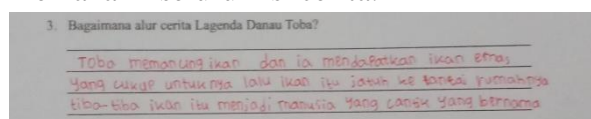 3. Bagaimana alur cerita Lagenda Danau Toba?
Toba memancing ikan dan ia mendapatkan ikan emas
yang cukup untuknya lalu ikan itu jatuh ke lantai rumahnya
tiba-tiba ikan itu menjadi manusia yang cantik yang bernama